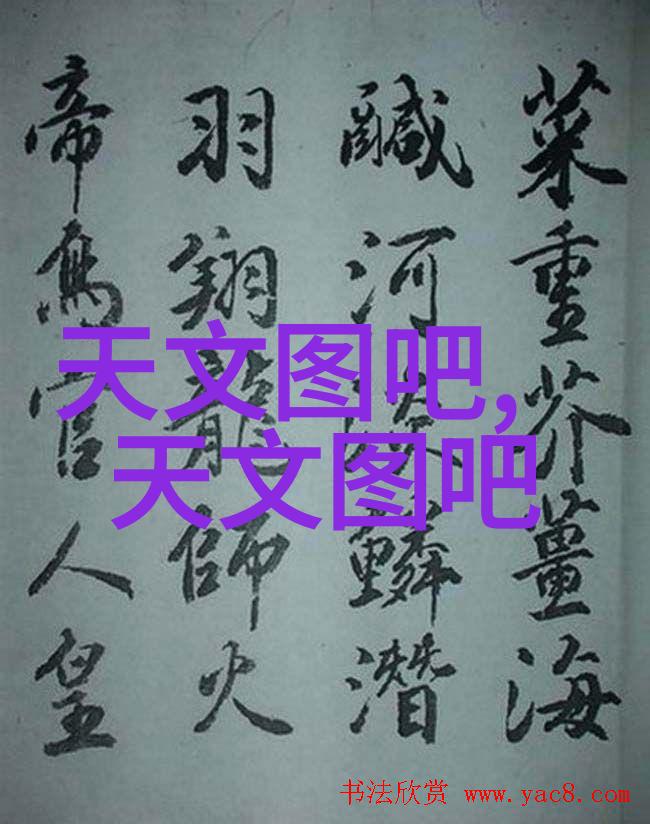 菜重芥薑海
鹹河淡鱗潛
羽翔龍師火
帝鳥官人皇
天文图吧,
天文图吧
书法欣赏 www.yac8.com